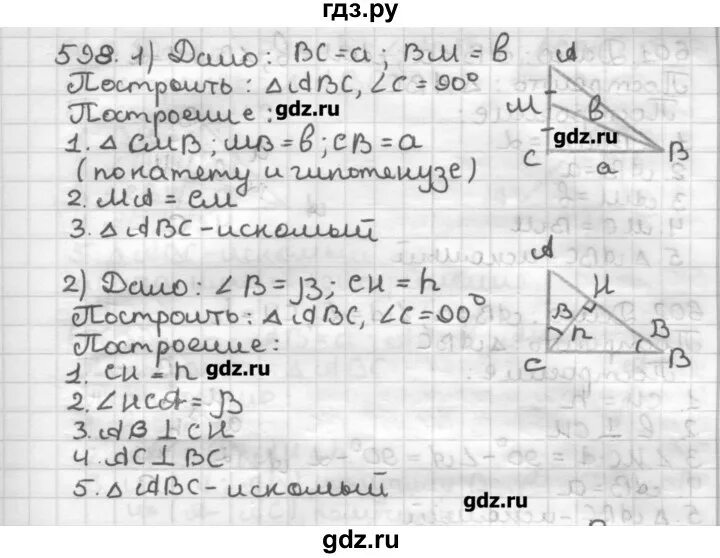 гдз.ру
598. 1) Дано: BC = a; BM = b
Построить: △ABC, ∠C = 90°
Построение:
gdz.ru
1. △CMB; MB = b; CB = a
(по катету и гипотенузе)
2. MA = CM
3. △ABC - искомый
A
M
b
gdz.ru
C
a
B
2) Дано: ∠B = β; CH = h
Построить: △ABC, ∠C = 90°
Построение:
1. CH = h
gdz.ru
2. ∠HCA = β
3. AB ⊥ CH
4. AC ⊥ BC
5. △ABC - искомый
A
H
β
h
β
C
B
gdz.ru
gdz.ru